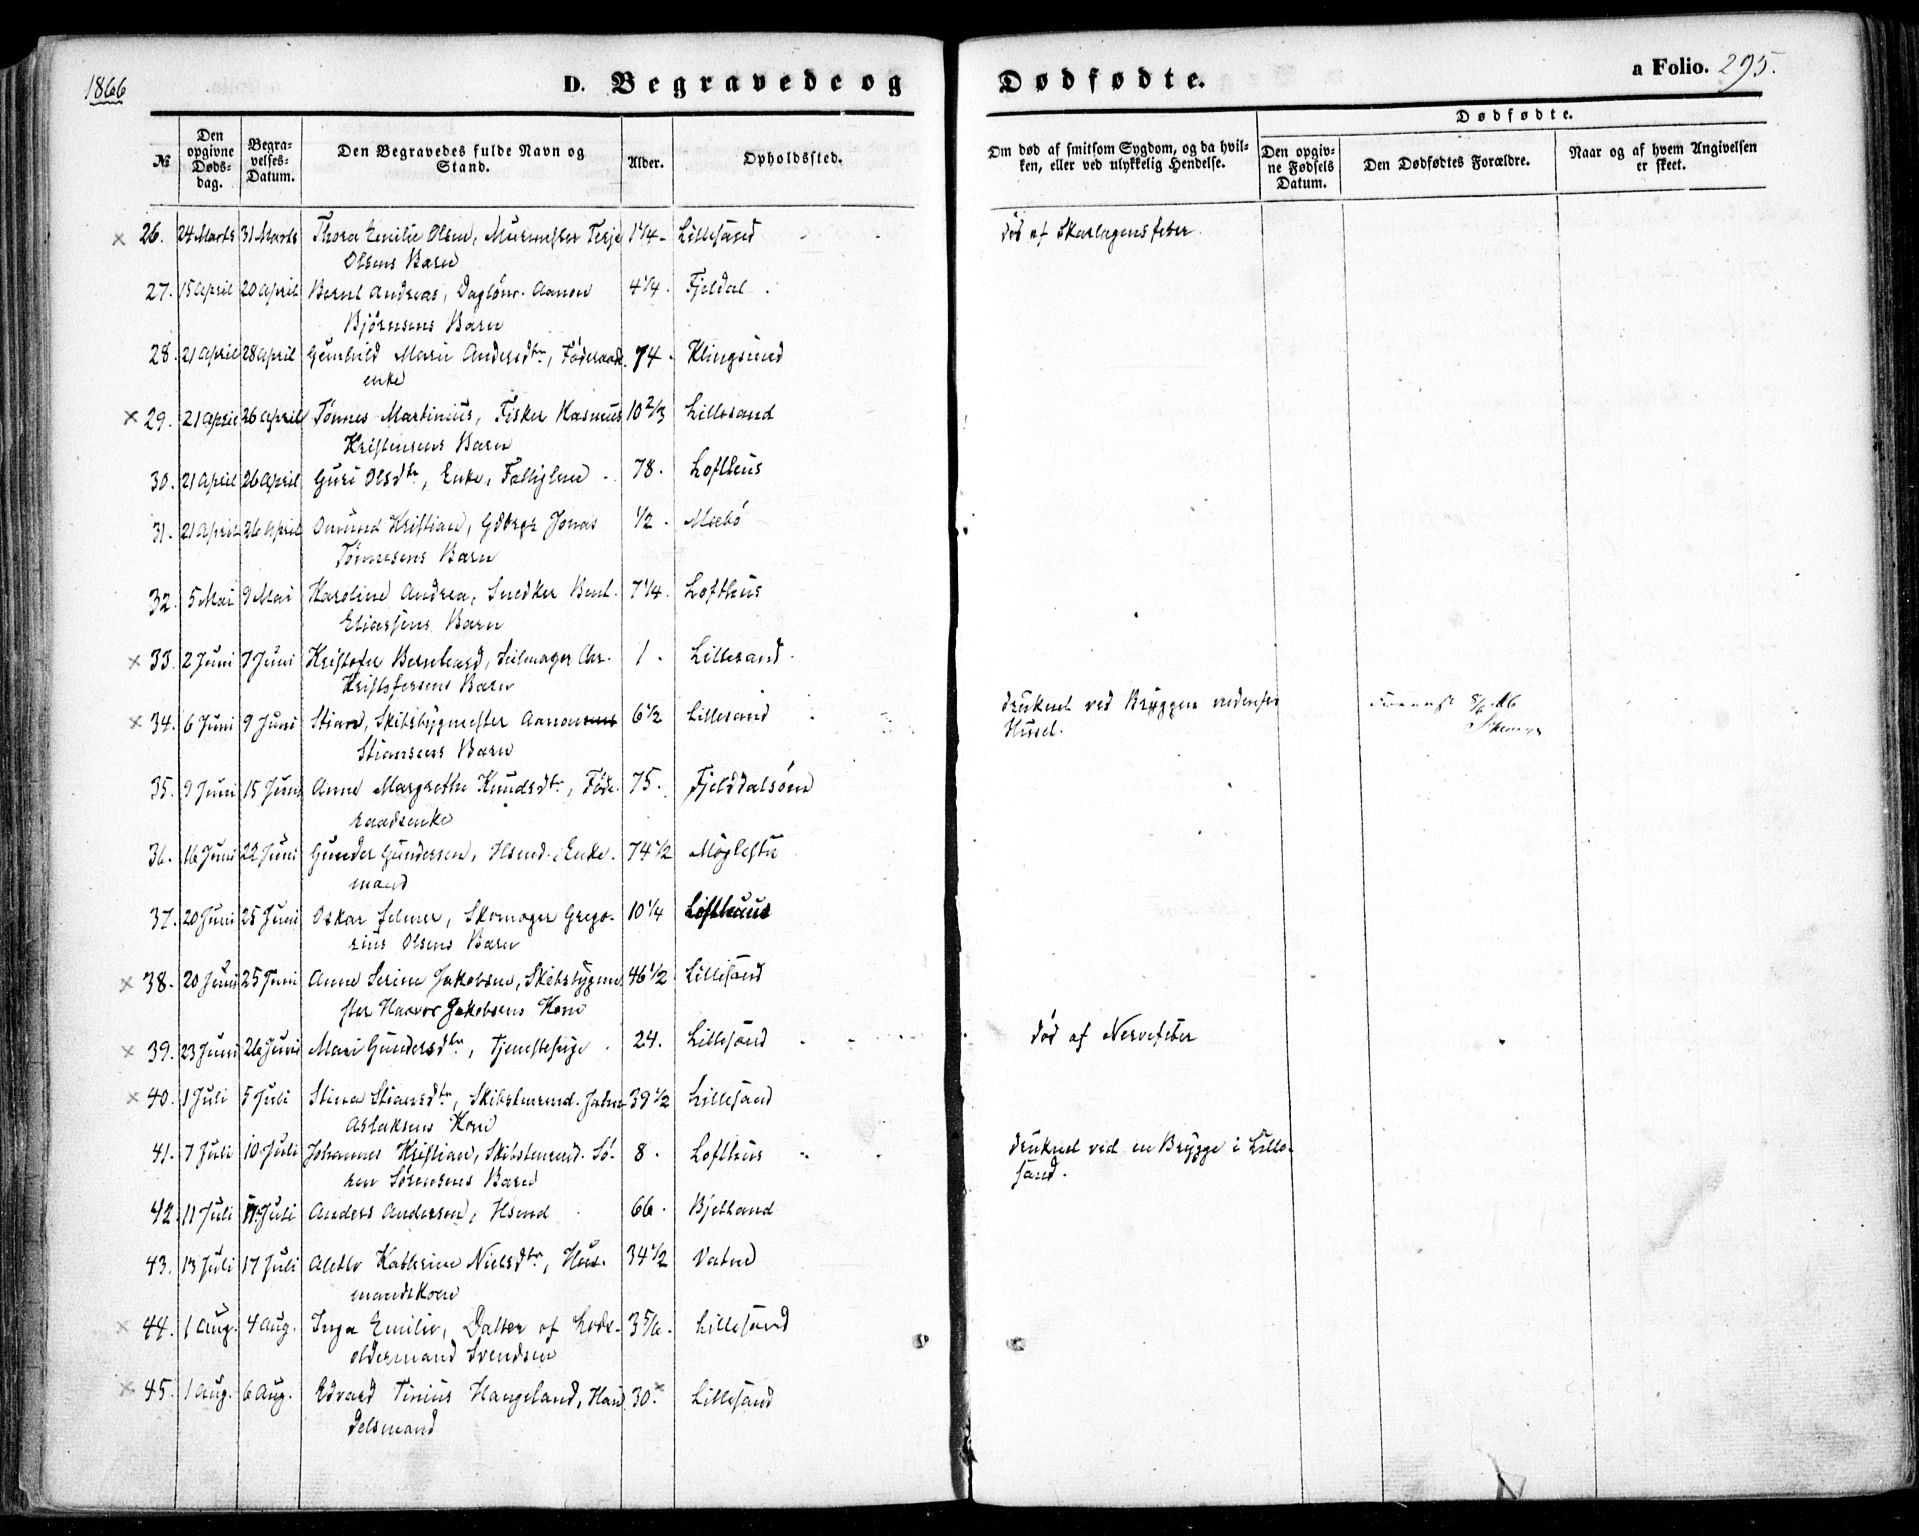 1866
D. Begravede og Dødfødte.
a Folio. 295.
Dødfødte.
№
Den opgivne Dødsdag.
Begravelses-Datum.
Den Begravedes fulde Navn og Stand.
Alder.
Opholdssted.
Om død af smitsom Sygdom, og da hvilken, eller ved ulykkelig Hendelse.
Den opgivne Fødsels Datum.
Den Dødfødtes Forældre.
Naar og af hvem Angivelsen er skeet.
× 26. 24 Marts 31 Marts Thora Emilie Olsen, Murmester Terje 1 1/4 Lillesand død af Skarlagensfeber
Olsens Barn
27. 15 April 20 April Bernt Andreas, Daglønr. Aanon 4 1/4 Fjeldal
Bjørnsens Barn
28. 21 April 28 April Gunhild Marie Andersdtr, Føderaads 74 Klingsund
enke
× 29. 21 April 26 April Tønnes Martinius, Fisker Rasmus 10 2/3 Lillesand
Kristensens Barn
30. 21 April 26 April Guri Olsdtr, Enke, Fattiglem 78. Lofthus
31. 21 April 26 April Omund Kristian, Gdbrgr Jonas 1/2 Mæbø
Tønnesens Barn
32. 5 Mai 9 Mai Karoline Andrea, Snedker Bent 7 1/4 Lofthus
Eliassens Barn
× 33. 2 Juni 7 Juni Kristofer Bernhard, Seilmager Chr. 1 Lillesand
Kristofersens Barn
× 34. 6 Juni 9 Juni Stian, Skibsbygmester Aanon 6 1/2 Lillesand druknet ved Bryggen nedenfor
Stiansens Barn Huset.
35. 9 Juni 15 Juni Anne Margrethe Knudsdtr,Føde- 75. Fjelddalsøen
raadsenke
36. 16 Juni 22 Juni Gunder Gundersen, Hsmd. Enke- 74 1/2 Møglestu
mand
37. 20 Juni 25 Juni Oskar Selmer, Skomager Grego- 10 1/4 Lofthuus
rius Olsens Barn
× 38. 20 Juni 25 Juni Anne Serine Jakobsen, Skibsbygme 46 1/2 Lillesand
ster Haavor Jakobsens Kone
× 39. 23 Juni 26 Juni Mari Gundersdtr, Tjenestepige 24. Lillesand død af Nervefeber
× 40. 1 Juli 5 Juli Stina Stiansdtr, Skibstmrmd. 39 1/2 Lillesand
Aslaksens Kone
41. 7 Juli 10 Juli Johannes Kristian, Skibstmrmd. Sø- 8 Lofthus druknet ved en Brygge i Lille-
ren Sørensens Barn sand.
42. 11 Juli 17 Juli Anders Andersen, Hsmd 66 Bjelland
43. 13 Juli 17 Juli Alethe Kathrine Nielsdtr, Hus- 34 1/2 Vatne
mandskone
× 44. 1 Aug. 4 Aug. Inga Emilie, Datter af Lods- 3 5/6 Lillesand
oldermand Svendsen
× 45. 1 Aug. 6 Aug. Edvard Tinius Haugeland, Han 30 × Lillesand
delsmand